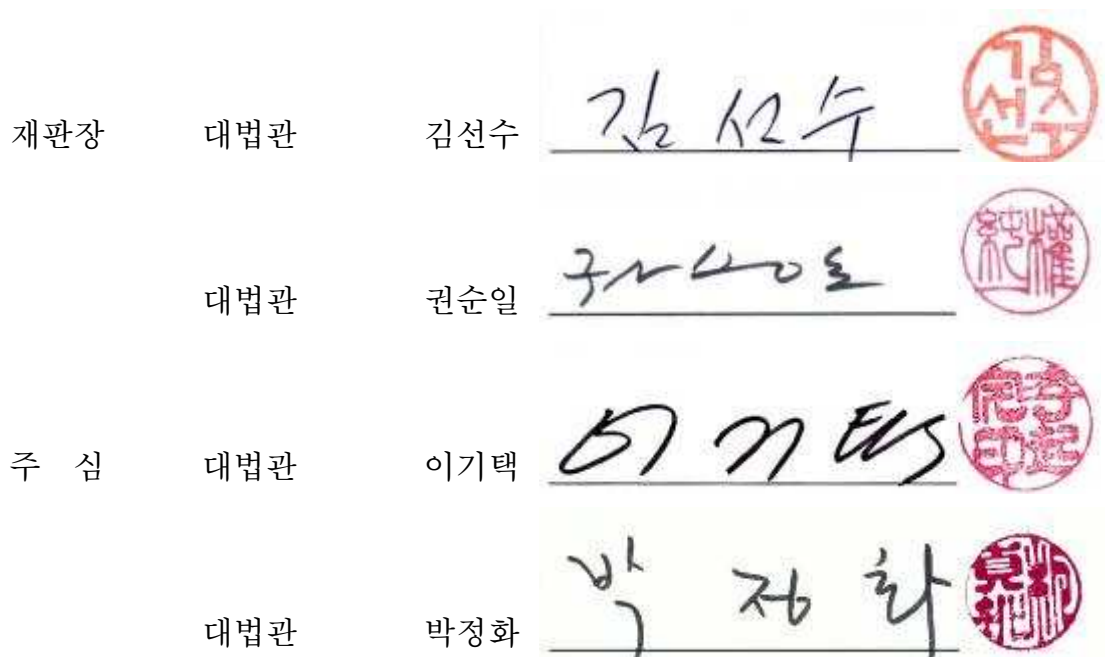 재판장 대법관 김선수 김선수
대법관 권순일
주 심 대법관 이기택 이기택
대법관 박정화 박정화